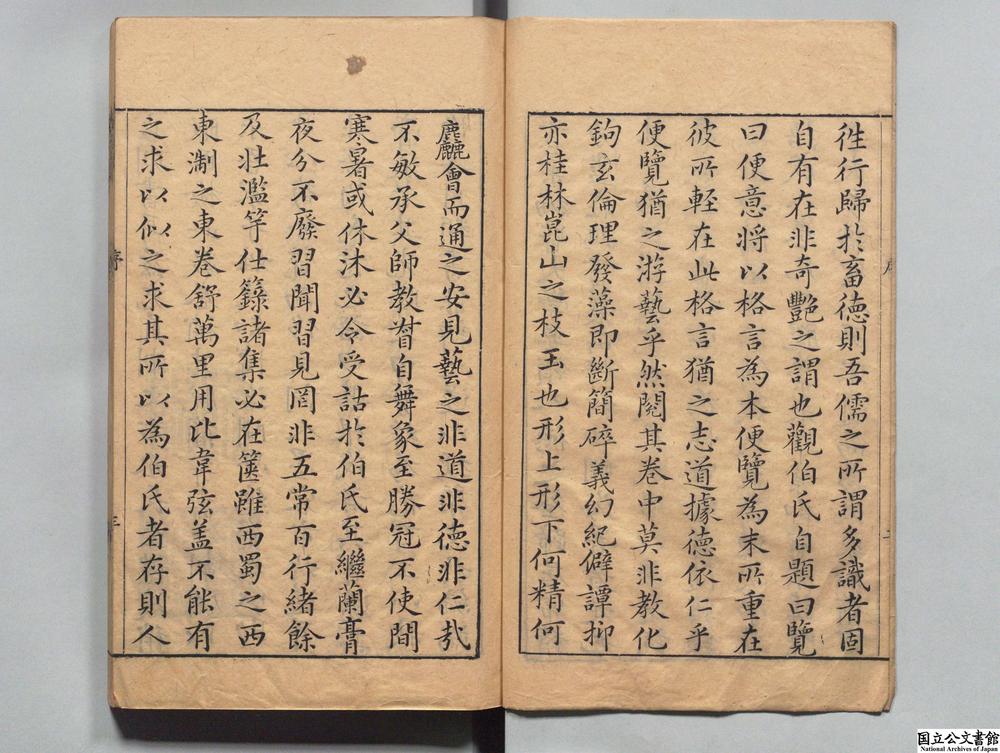 徃行歸扵畜德則吾儒之所謂多識者固
自有在非奇艷之謂也觀伯氏自題曰覽
曰便意将以格言為本便覽為末所重在
彼所輕在此格言猶之志道據德依仁乎
便覽猶之游藝乎然閱其卷中莫非教化
鉤玄倫理發藻即斷簡碎義幻紀僻譚抑
亦桂林崑山之枝玉也形上形下何精何
麤會而通之安見藝之非道非德非仁㢤
不敏承父師教督自舞象至勝冠不使間
寒暑或休沐必令受詁扵伯氏至繼蘭膏
夜分不廢習聞習見罔非五常百行緒餘
及壯濫竽仕籙諸集必在篋雖西蜀之西
東淛之東卷舒萬里用比韋弦盖不能有
之求以似之求其所以為伯氏者存則人
序
国立公文書館
National Archives of Japan